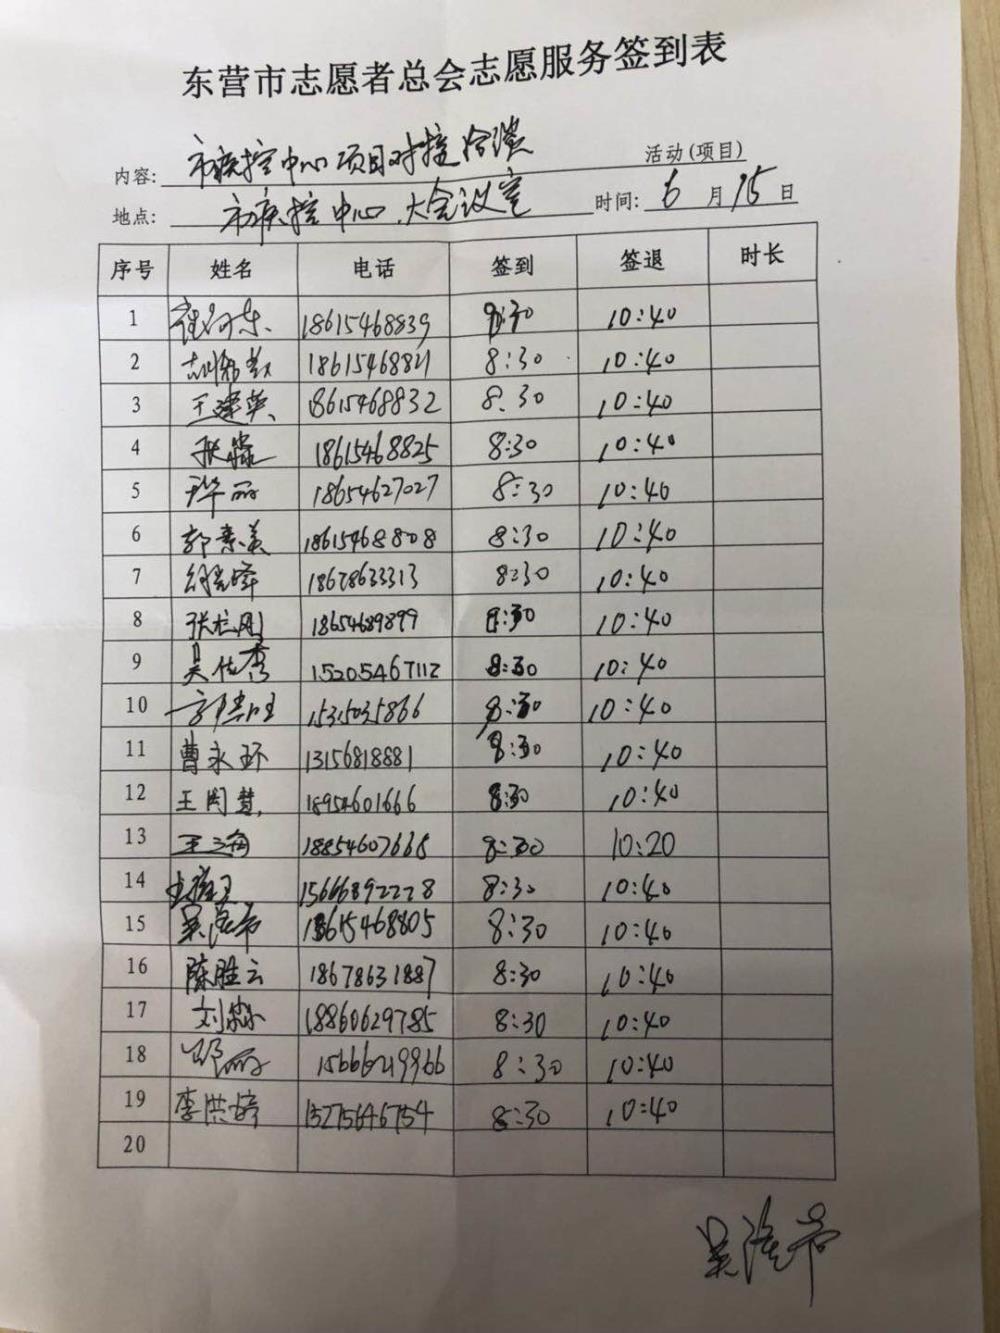 东营市志愿者总会志愿服务签到表
内容: 市疾控中心项目对接洽谈 活动(项目)
地点: 市疾控中心大会议室 时间: 6月15日
序号 姓名 电话 签到 签退 时长
1 18615468839 8:30 10:40
2 18615468821 8:30 10:40
3 王建英 18615468832 8:30 10:40
4 张 18615468825 8:30 10:40
5 丽 18654627027 8:30 10:40
6 郭素美 18615468808 8:30 10:40
7 18678633313 8:30 10:40
8 张 刚 18654689899 8:30 10:40
9 吴佳秀 15205467112 8:30 10:40
10 15315035866 8:30 10:40
11 曹永环 13156818881 8:30 10:40
12 王周慧 18954601666 8:30 10:40
13 王海 18854607668 8:30 10:20
14 15666892228 8:30 10:40
15 吴 18615468805 8:30 10:40
16 陈胜云 18678631887 8:30 10:40
17 刘淼 18860629785 8:30 10:40
18 邓丽 15666219966 8:30 10:40
19 李洪婷 15275646754 8:30 10:40
20
吴